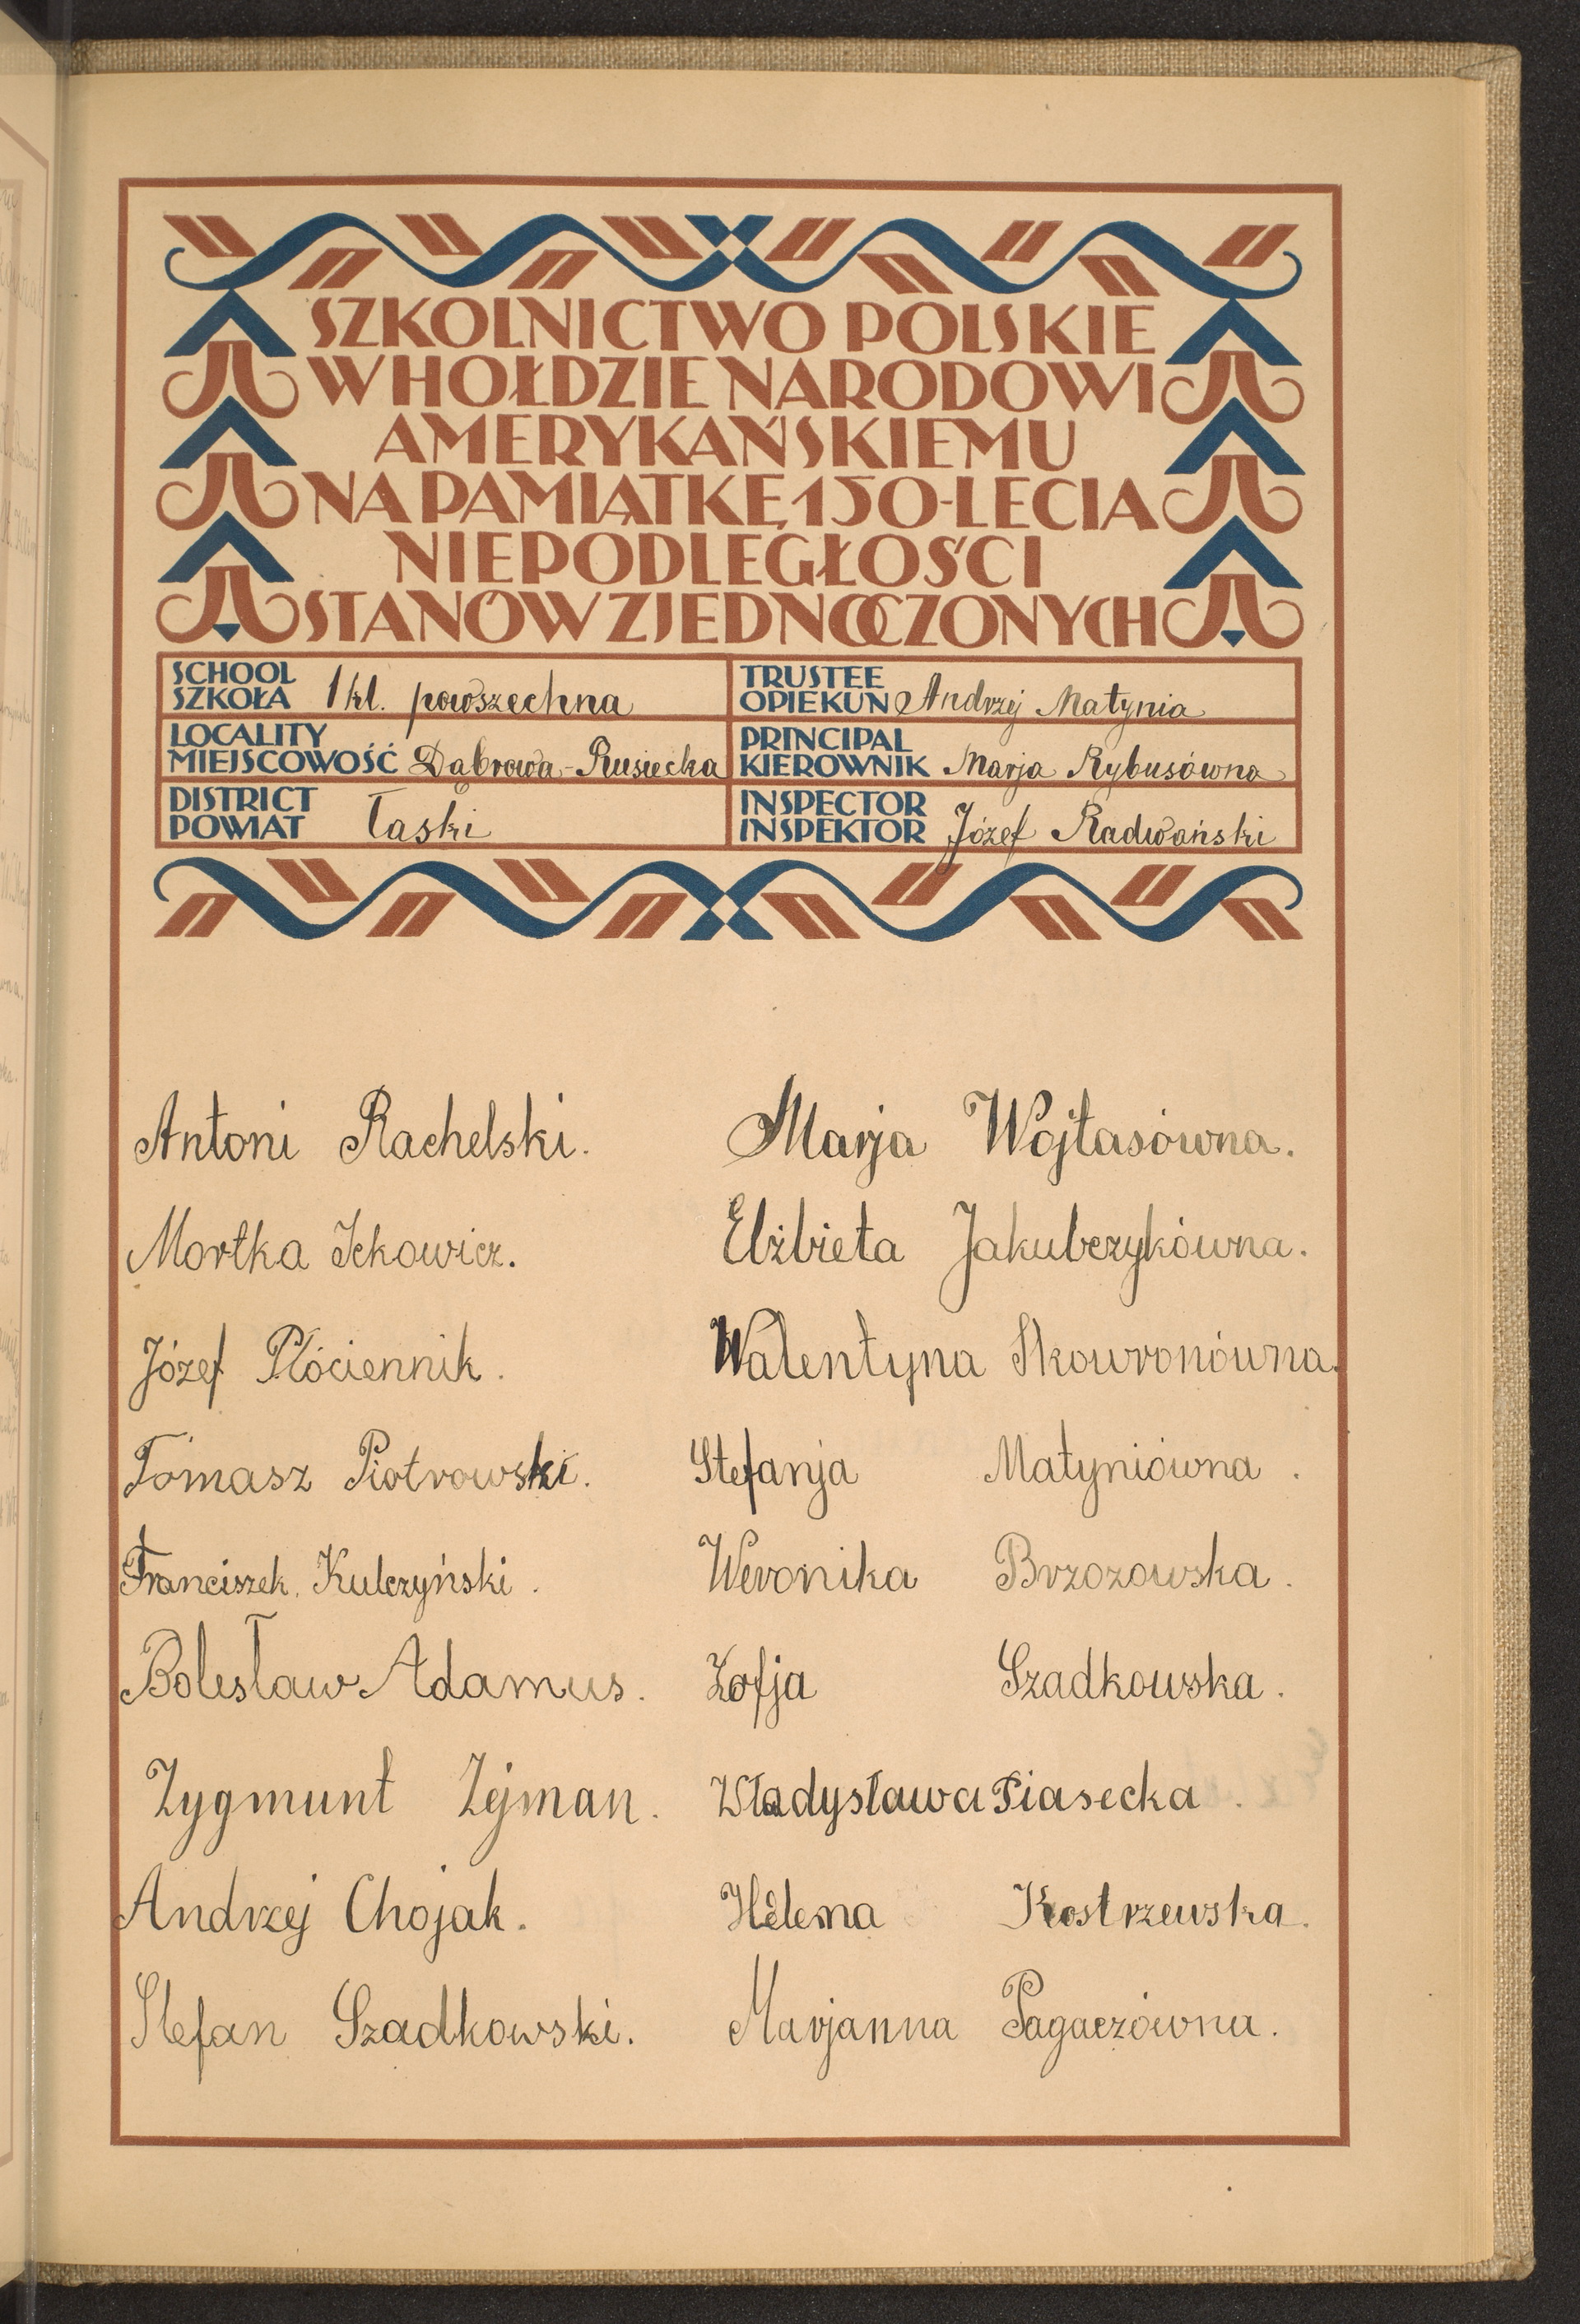 SZKOLNICTWO POLSKIE
W HOŁDZIE NARODOWI
AMERYKAŃSKIEMU
NA PAMIĄTKĘ 150-LECIA
NIEPODLEGŁOŚCI
STANÓW ZJEDNOCZONYCH
SCHOOL
SZKOŁA 1 kl. powszechna
LOCALITY
MIEJSCOWOŚĆ Dąbrowa-Rusiecka
DISTRICT
POWIAT Łaski
TRUSTEE
OPIEKUN Andrzej Matynia
PRINCIPAL
KIEROWNIK Marja Rybusówna
INSPECTOR
INSPEKTOR Józef Radwański
Antoni Rachelski.
Mortka Ickowicz.
Józef Płóciennik.
Tomasz Piotrowski.
Franciszek Kulczyński.
Bolesław Adamus.
Zygmunt Zejman.
Andrzej Chojak.
Stefan Szadkowski.
Marja Wojtasówna.
Elżbieta Jakubczykówna.
Walentyna Skowronówna.
Stefanja Matyniówna.
Weronika Brzozowska.
Zofja Szadkowska.
Władysława Piasecka.
Helena Kostrzewska.
Marjanna Pagaczówna.